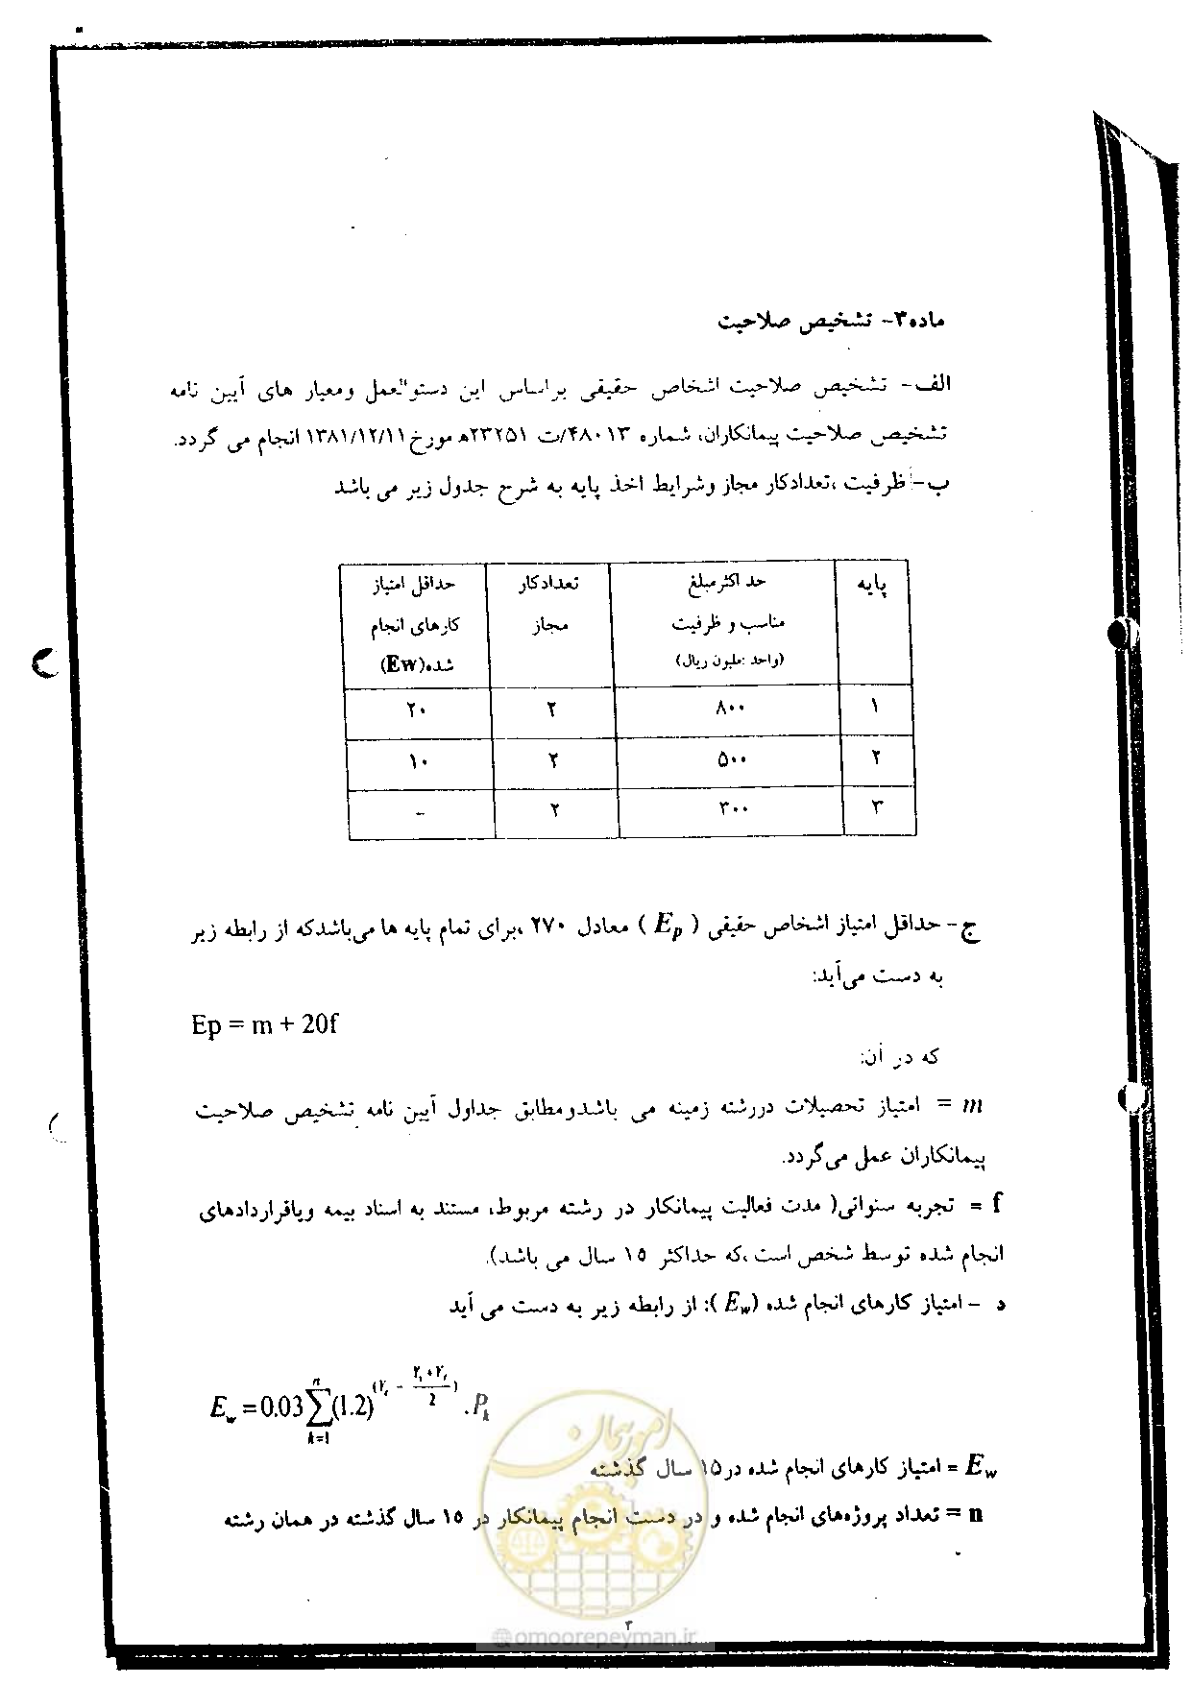 ماده۳- تشخیص صلاحیت
الف- تشخیص صلاحیت اشخاص حقیقی براساس این دستوالعمل ومعیار های آیین نامه
تشخیص صلاحیت پیمانکاران، شماره ۴۸۰۱۳/ت ۲۳۲۵۱ه مورخ ۱۳۸۱/۱۲/۱۱ انجام می گردد.
ب- ظرفیت ،تعدادکار مجاز وشرایط اخذ پایه به شرح جدول زیر می باشد
پایه | حد اکثرمبلغ مناسب و ظرفیت (واحد :ملیون ریال) | تعدادکار مجاز | حداقل امتیاز کارهای انجام شده(Ew)
۱ | ۸۰۰ | ۲ | ۲۰
۲ | ۵۰۰ | ۲ | ۱۰
۳ | ۳۰۰ | ۲ | -
ج- حداقل امتیاز اشخاص حقیقی ( Ep ) معادل ۲۷۰ ،برای تمام پایه ها می‌باشدکه از رابطه زیر
به دست می‌آید:
Ep = m + 20f
که در آن:
m = امتیاز تحصیلات دررشته زمینه می باشدومطابق جداول آیین نامه تشخیص صلاحیت
پیمانکاران عمل می‌گردد.
f = تجربه سنواتی( مدت فعالیت پیمانکار در رشته مربوط، مستند به اسناد بیمه ویاقراردادهای
انجام شده توسط شخص است ،که حداکثر ۱۵ سال می باشد).
د - امتیاز کارهای انجام شده (Ew ): از رابطه زیر به دست می آید
Ew = 0.03 ∑ n k=1 (1.2) .Pk
Ew = امتیاز کارهای انجام شده در۱۵ سال گذشته
n = تعداد پروژه‌های انجام شده و در دست انجام پیمانکار در ۱۵ سال گذشته در همان رشته
امور پیمان
@omoorepeyman.ir